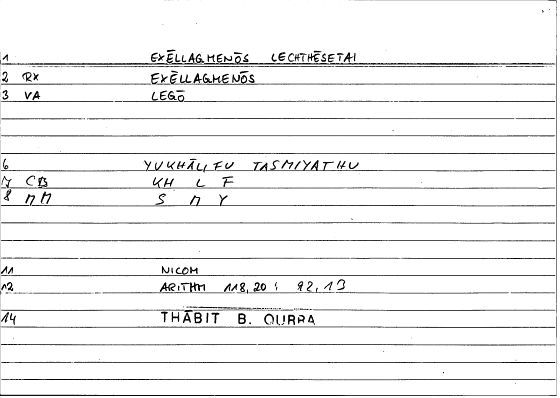 1 EXĒLLAGMENŌS LECHTHĒSETAI
2 RX EXĒLLAGMENŌS
3 VA LEGŌ
6 YUKHĀLIFU TASMIYATHU
7 CB KH L F
8 MM S M Y
11 NICOM
12 ARITHM 118,20 : 92,13
14 THĀBIT B. QURRA